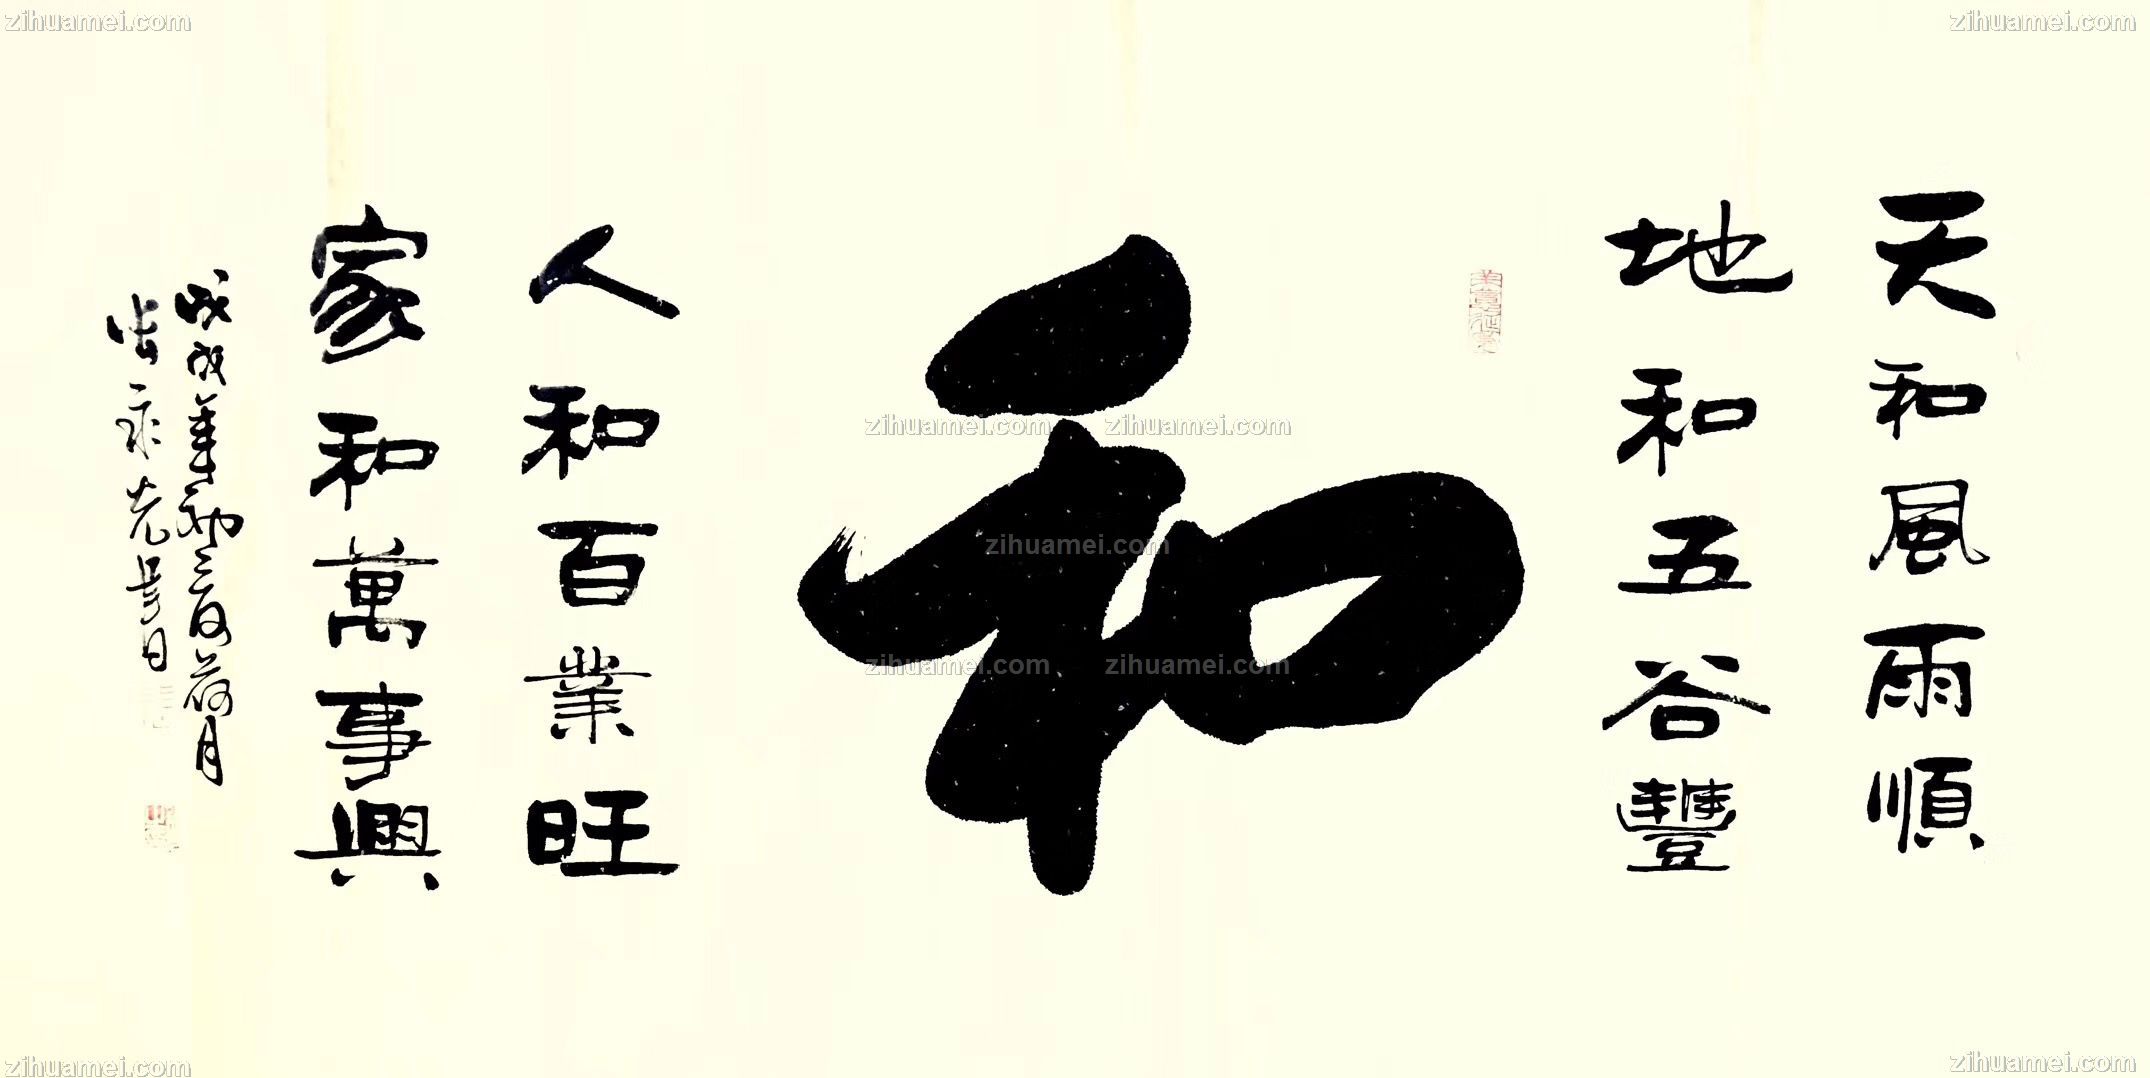 zihuamei.com
zihuamei.com
天和風雨順
地和五谷豐
和
人和百業旺
家和萬事興
戊戌年初夏荷月
zihuamei.com
zihuamei.com
zihuamei.com
zihuamei.com
zihuamei.com
zihuamei.com
zihuamei.com